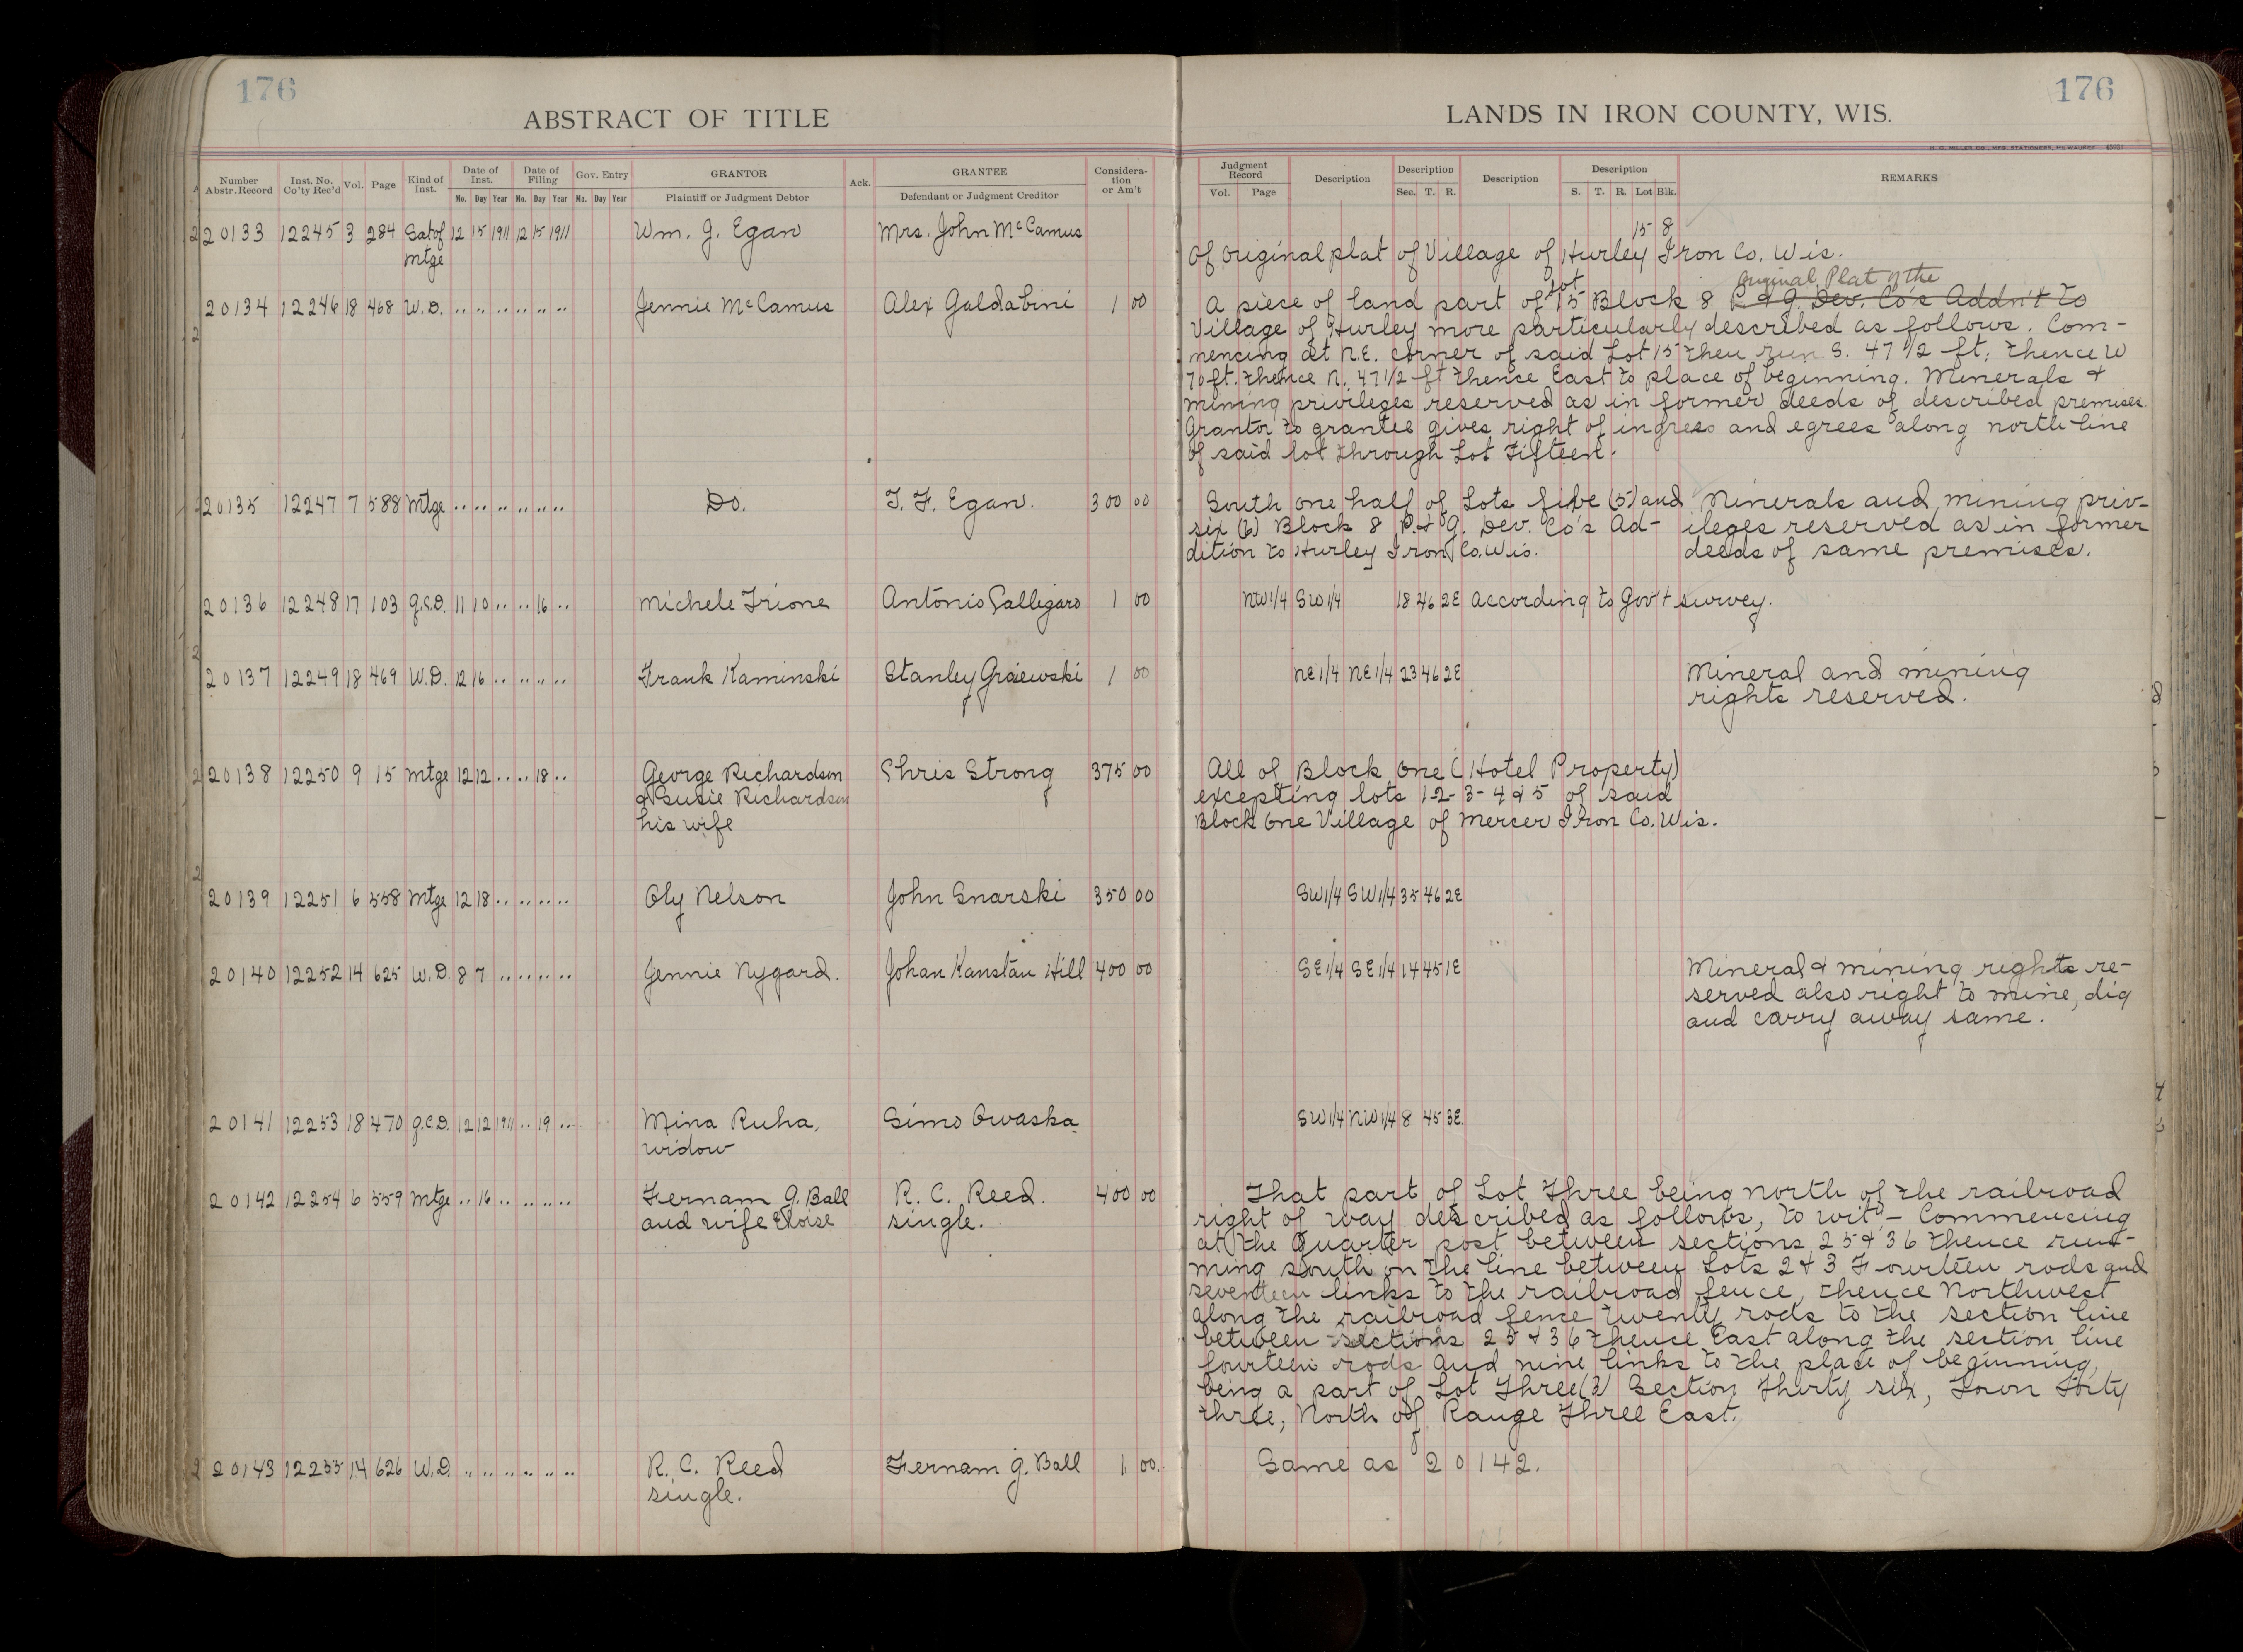 176
ABSTRACT OF TITLE
Number Abstr. Record Inst. No. Co'ty Rec'd Vol. Page Kind of Inst. Date of Inst. Mo. Day Year Date of Filing Mo. Day Year Gov. Entry Mo. Day Year GRANTOR Plaintiff or Judgment Debtor Ack. GRANTEE Defendant or Judgment Creditor Considera-tion or Am't
20133 12245 3 284 Sat of 12 15 1911 12 15 1911 Wm. G. Egan Mrs. John McCamus
mtge
20134 12246 18 468 W.D. .. .. .. .. .. .. Jennie McCamus Alex Galdabini 1 00
20135 12247 7 588 Mtge .. .. .. .. .. .. Do. T. F. Egan. 300 00
20136 12248 17 103 Q.C.D. 11 10 .. .. 16 .. Michele Trione Antonio Calligaro 1 00
20137 12249 18 469 W.D. 12 16 .. .. .. .. Frank Kaminski Stanley Grajewski 1 00
20138 12250 9 15 Mtge 12 12 .. .. 18 .. George Richardson Chris Strong 375 00
& Susie Richardson
his wife
20139 12251 6 558 Mtge 12 18 .. .. .. .. Oly Nelson John Snarski 350 00
20140 12252 14 625 W.D. 8 7 .. .. .. .. Jennie Nygard. Johan Kanstan Hill 400 00
20141 12253 18 470 Q.C.D. 12 12 1911 .. 19 .. Mina Ruha, Simo Owaska
widow
20142 12254 6 559 Mtge .. 16 .. .. .. .. Fernam G. Ball R. C. Reed. 400 00
and wife Eloise single.
20143 12255 14 626 W.D. .. .. .. .. .. .. R. C. Reed Fernam G. Ball 1 00
single.
176
LANDS IN IRON COUNTY, WIS.
H. G. MILLER CO., MFG. STATIONERS, MILWAUKEE
Judgment Record Vol. Page Description Description Sec. T. R. Description Description S. T. R. Lot Blk. REMARKS
15 8
Of Original plat of Village of Hurley Iron Co. Wis.
Original Plat of the
A piece of land part of Lot 15 Block 8 P. & G. Dev. Co's Addn't to
Village of Hurley more particularly described as follows. Com-
mencing at N.E. corner of said Lot 15 then run S. 47 1/2 ft; thence W
70 ft. thence N. 47 1/2 ft thence East to place of beginning. Minerals &
mining privileges reserved as in former deeds of described premises.
Grantor to grantee gives right of ingress and egrees along north line
of said lot through Lot Fifteen.
South one half of Lots five (5) and Minerals and mining priv-
six (6) Block 8 P. & G. Dev. Co's Ad- ileges reserved as in former
dition to Hurley Iron Co. Wis. deeds of same premises.
NW 1/4 SW 1/4 18 46 2E according to Gov't survey.
NE 1/4 NE 1/4 23 46 2E Mineral and mining
rights reserved.
All of Block One (Hotel Property)
excepting lots 1-2-3-4 & 5 of said
Block One Village of Mercer Iron Co. Wis.
SW 1/4 SW 1/4 35 46 2E
SE 1/4 SE 1/4 14 45 1E Mineral & mining rights re-
served also right to mine, dig
and carry away same.
SW 1/4 NW 1/4 8 45 3E
That part of Lot Three being north of the railroad
right of way described as follows, to wit:- Commencing
at the Quarter post between sections 25 & 36 thence run-
ning south on the line between Lots 2 & 3 Fourteen rods and
seventeen links to the railroad fence, thence Northwest
along the railroad fence twenty rods to the section line
between sections 25 & 36 thence East along the section line
fourteen rods and nine links to the place of beginning,
being a part of Lot Three (3) Section Thirty six, Town Forty
three, North of Range Three East.
Same as 20142.